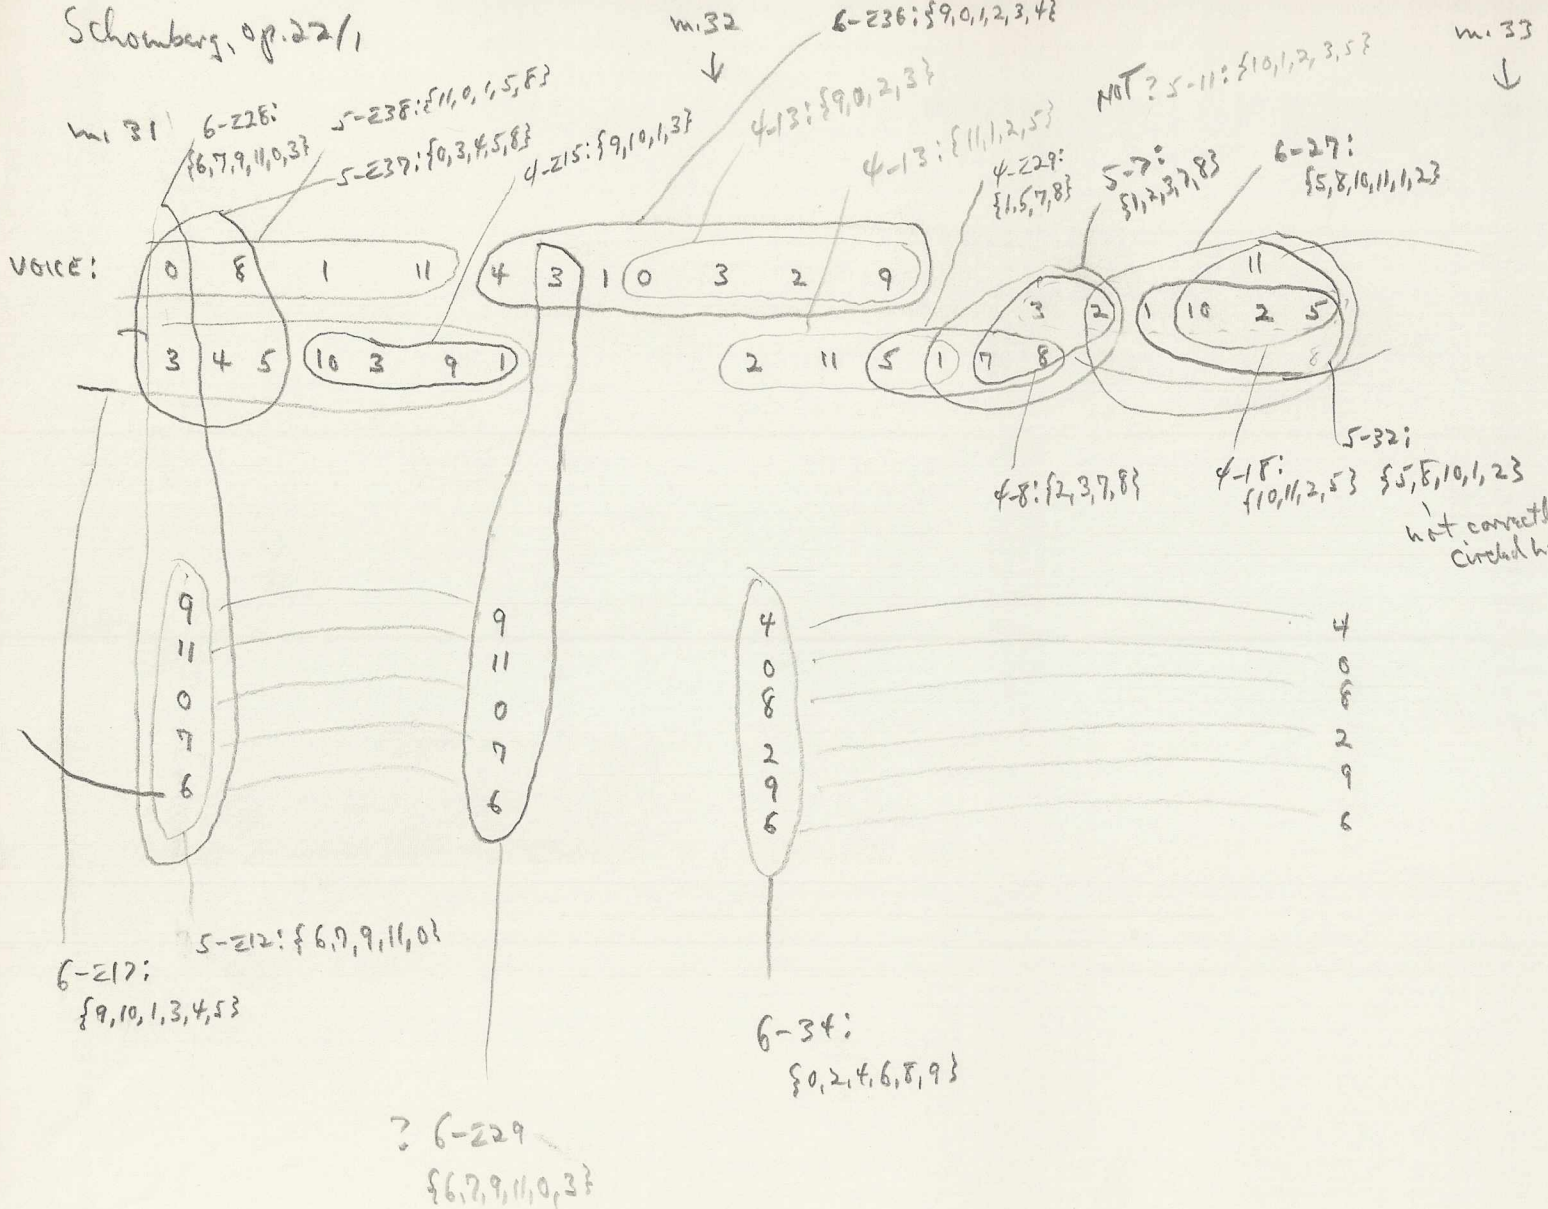 Schoenberg, op.22/1
m.32
↓
6-Z36:{9,0,1,2,3,4}
m.33
↓
m.31
6-Z28:
{6,7,9,11,0,3}
5-Z38:{11,0,1,5,8}
5-Z37:{0,3,4,5,8}
4-Z15:{9,10,1,3}
4-13:{9,0,2,3}
4-13:{11,1,2,5}
4-Z29:
{1,5,7,8}
NOT? 5-11:{10,1,2,3,5}
5-7:
{1,2,3,7,8}
6-27:
{5,8,10,11,1,2}
VOICE: 0 8 1 11 4 3 1 0 3 2 9 11
3 2 1 10 2 5
3 4 5 10 3 9 1 2 11 5 1 7 8 8
4-8:{2,3,7,8}
4-18:
{10,11,2,5}
5-32:
{5,8,10,1,2}
not correctly
circled
9 9 4 4
11 11 0 0
0 0 8 8
7 7 2 2
6 6 9 9
6 6
5-Z12:{6,7,9,11,0}
6-Z17:
{9,10,1,3,4,5}
6-34:
{0,2,4,6,8,9}
? 6-Z29
{6,7,9,11,0,3}